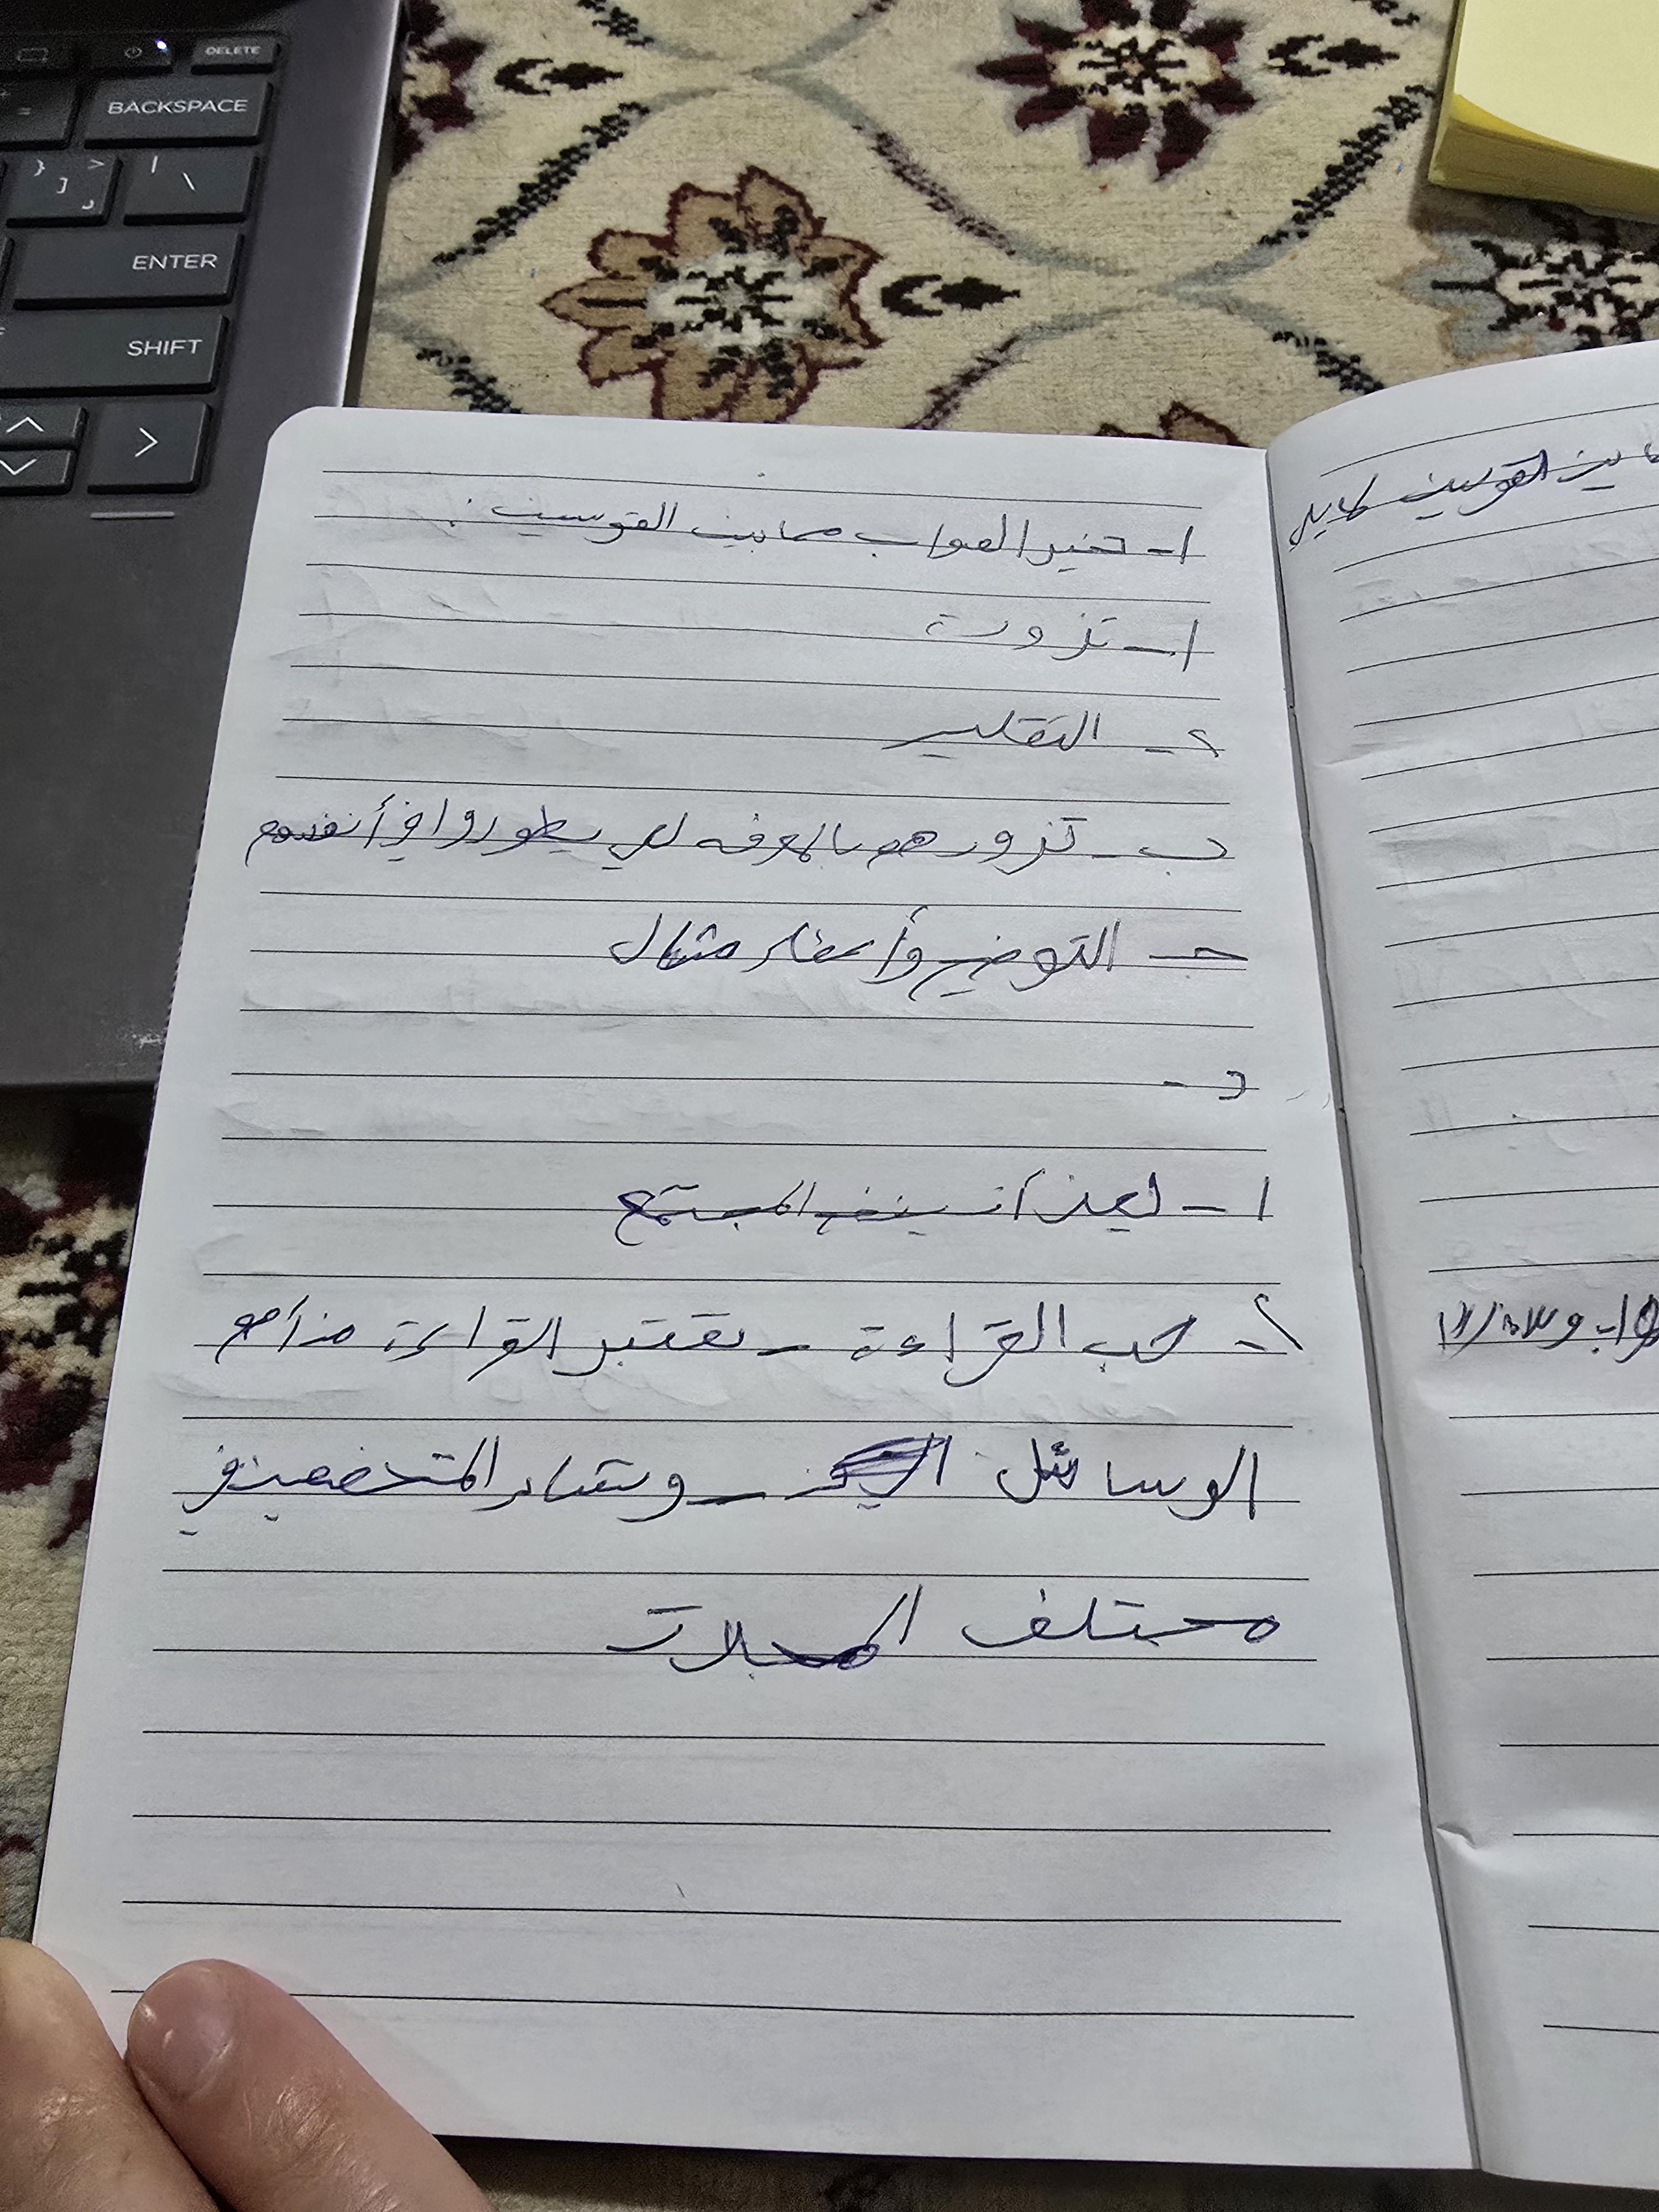 DELETE
BACKSPACE
ENTER
SHIFT
١- تخير الصواب مما بين القوسين :
١- تزود
٢- التقليد
ب - تزودهم بالمعرفه لكي يطوروا في أنفسهم
ج - التوضيح وأعطاء مثال
د -
١- لابد أن ينفع المجتمع
٢- حب القراءة - تعتبر القراءة من أهم
الوسائل - المتخصصين في
مختلف المجلات
ما بين القوسين